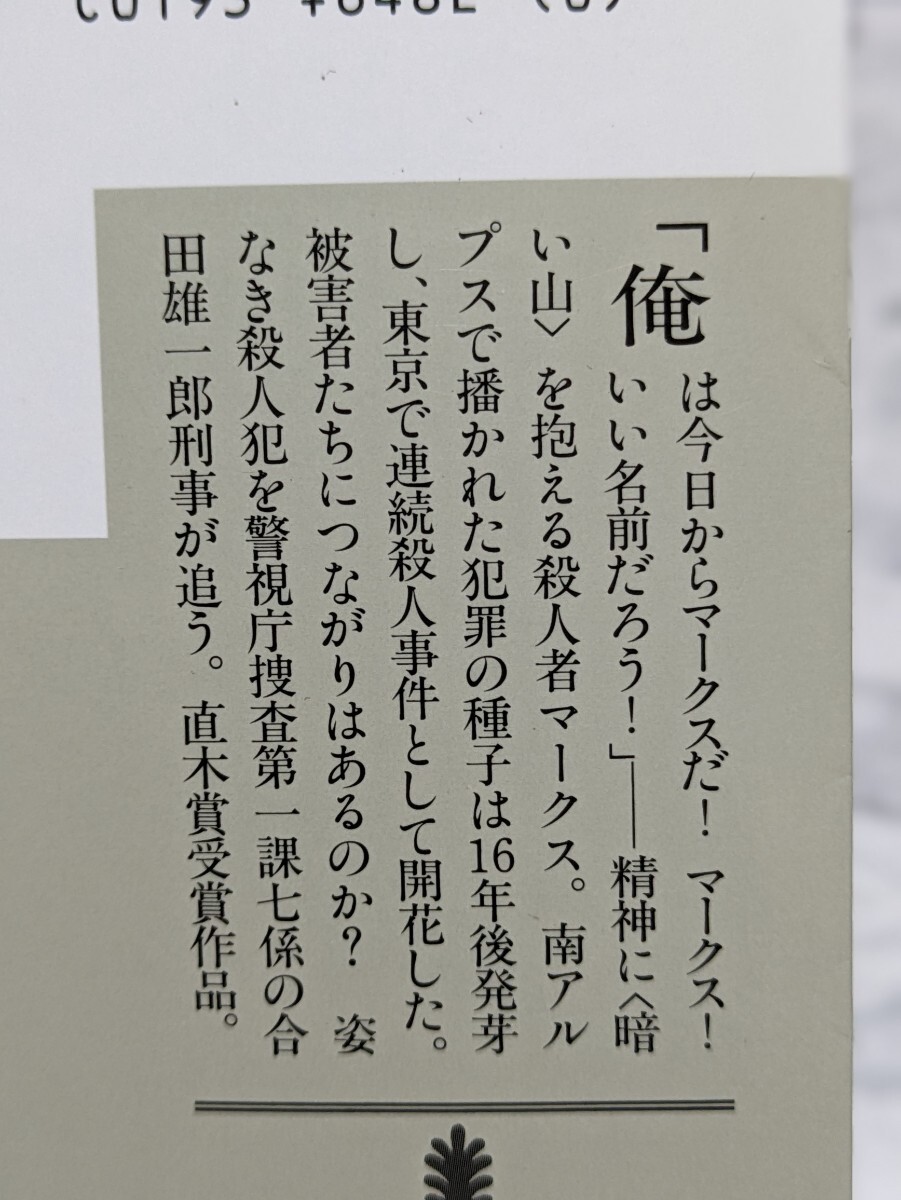 「俺は今日からマークスだ！ マークス！
いい名前だろう！」――精神に〈暗
い山〉を抱える殺人者マークス。南アル
プスで播かれた犯罪の種子は16年後発芽
し、東京で連続殺人事件として開花した。
被害者たちにつながりはあるのか？ 姿
なき殺人犯を警視庁捜査第一課七係の合
田雄一郎刑事が追う。直木賞受賞作品。